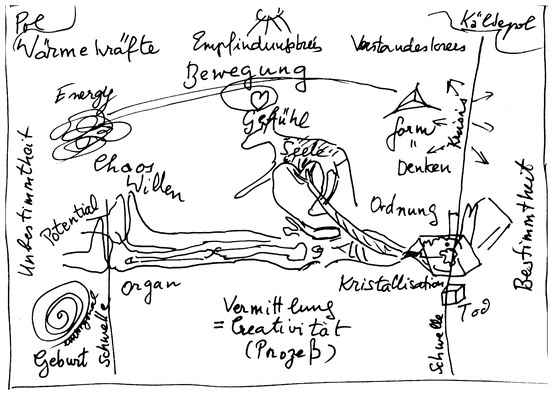 Pol
Wärmekräfte
Empfindungskreis
Kältepol
Verstandeskreis
Bewegung
Energy
Gefühl
form
=
Denken
Kreis
Chaos
Willen
Seele
Unbestimmtheit
Potential
Ordnung
Bestimmtheit
Organ
Kristallisation
Tod
Schwelle
Schwelle
Geburt
Vermittlung
= Creativität
(Prozeß)